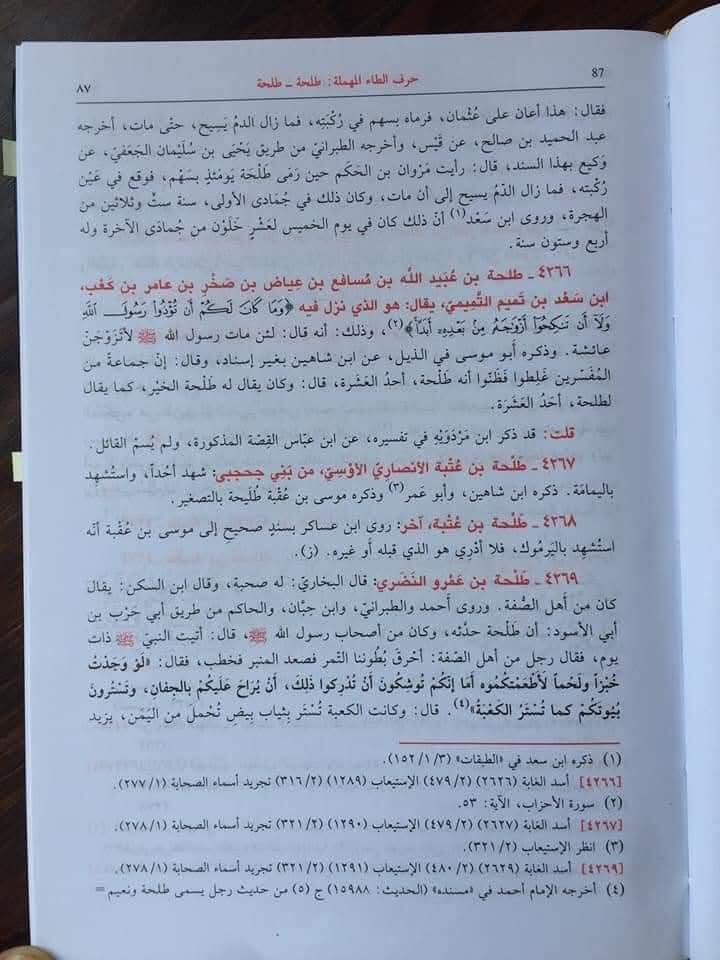 87 حرف الطاء المهملة: طلحة - طلحة ٨٧
فقال: هذا أعان على عُثْمان، فرماه بسهم في رُكْبَتِه، فما زال الدمُ يَسِيح، حتّى مات، أخرجه
عبد الحميد بن صالح، عن قَيْس، وأخرجه الطبرانيّ من طريق يَحْيَى بن سُلَيْمان الجَعفيّ، عن
وَكيع بهذا السند، قال: رأيت مَرْوان بن الحَكَم حين رَمَى طَلْحَة يَومَئذٍ بسَهْم، فوقع في عَيْن
رُكْبته، فما زال الدَّمُ يسيح إلى أن مات، وكان ذلك في جُمَادى الأولى، سنة ستٍّ وثلاثين من
الهجرة، وروى ابن سَعْد(١) أنّ ذلك كان في يوم الخميس لعَشْرٍ خَلَوْن من جُمَادى الآخرة وله
أربع وستون سنة.
٤٢٦٦ - طلحة بن عُبَيد اللَّه بن مُسافع بن عِياض بن صَخْرِ بن عامر بن كَعْب،
ابن سَعْد بن تَميم التَّميميّ، يقال: هو الذي نزل فيه ﴿وَمَا كَانَ لَكُمْ أَن تُؤْذُوا رَسُولَ اللَّهِ
وَلَا أَن تَنكِحُوا أَزْوَاجَهُ مِنْ بَعْدِهِ أَبَدًا﴾(٢)، وذلك: أنه قال: لئن مات رسول الله ﷺ لأتزوّجَنّ
عائشة. وذكره أبو موسى في الذيل، عن ابن شاهين بغير إسناد، وقال: إنّ جماعةً من
المُفَسّرين غَلِطوا فَظَنّوا أنه طَلْحة، أحدُ العَشَرة، قال: وكان يقال له طَلْحة الخَيْر، كما يقال
لطلحة، أحَدُ العَشَرَة.
قلت: قد ذكر ابن مَرْدَوَيْهِ في تفسيره، عن ابن عبّاس القِصّة المذكورة، ولم يُسمّ القائل.
٤٢٦٧ - طَلْحَة بن عُتْبة الأنْصاريّ الأوْسيّ، من بَني جحجبى: شهد أُحُداً، واستُشهد
باليمامة. ذكره ابن شاهين، وأبو عمر(٣) وذكره موسى بن عُقْبة طُلَيحة بالتصغير.
٤٢٦٨ - طَلْحَة بن عُتْبة، آخر: روى ابن عساكر بسندٍ صحيح إلى موسى بن عُقْبة أنّه
استُشهد باليَرموك، فلا أدْري هو الذي قبله أو غيره. (ز).
٤٢٦٩ - طَلْحَة بن عَمْرو النَّضَري: قال البخاريّ: له صحبة، وقال ابن السكن: يقال
كان من أهل الصُّفة. وروى أحمد والطبرانيّ، وابن حِبَّان، والحاكم من طريق أبي حَرْب بن
أبي الأسود: أن طَلْحة حدّثه، وكان من أصحاب رسول الله ﷺ، قال: أتيت النبيّ ﷺ ذات
يوم، فقال رجل من أهل الصّفة: أحرقَ بُطُوننا التّمر فصعد المنبر فخطب، فقال: «لَوْ وَجَدْتُ
خُبْزاً ولَحْماً لأَطْعَمْتكُموه أمَا إنّكُم تُوشِكُونَ أنْ تُدْركوا ذلكَ، أنْ يُرَاحَ عَلَيكُمْ بالجِفانِ، وتَسْتُرونَ
بُيُوتَكُمْ كما تُسْتَر الكَعْبَةُ»(٤). قال: وكانت الكعبة تُسْتَر بثياب بيضٍ تُحْملُ من اليَمَن، يزيد
(١) ذكره ابن سعد في «الطبقات» (٣/ ١/ ١٥٢).
[٤٢٦٦] أسد الغابة (٢٦٢٦) (٢/ ٤٧٩) الإستيعاب (١٢٨٩) (٢/ ٣١٦) تجريد أسماء الصحابة (١/ ٢٧٧).
(٢) سورة الأحزاب، الآية: ٥٣.
[٤٢٦٧] أسد الغابة (٢٦٢٧) (٢/ ٤٧٩) الإستيعاب (١٢٩٠) (٢/ ٣٢١) تجريد أسماء الصحابة (١/ ٢٧٨).
(٣) انظر الإستيعاب (٢/ ٣٢١).
[٤٢٦٩] أسد الغابة (٢٦٢٩) (٢/ ٤٨٠) الإستيعاب (١٢٩١) (٢/ ٣٢١) تجريد أسماء الصحابة (١/ ٢٧٨).
(٤) أخرجه الإمام أحمد في «مسنده» (الحديث: ١٥٩٨٨) ج (٥) من حديث رجل يسمى طلحة ونعيم =